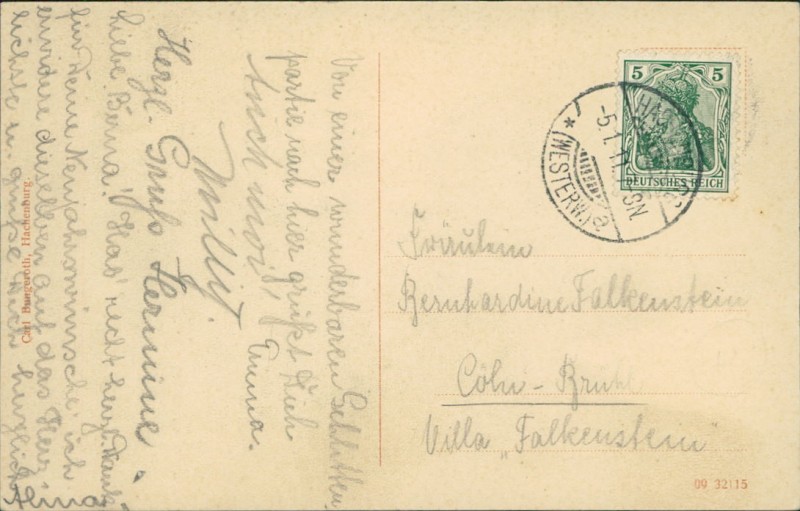 Von einer wunderbaren Schlitten-
partie nach hier grüßt Dich
Emma.
Auch moi!
Willy.
Herzl. Gruß Hermine
Liebe Berna! Hab' recht herzl. Dank
für Deine Neujahrswünsche ich
erwidere dieselben auf das Herz-
lichste u. grüße Dich herzlich
Alma
Carl Bungeroth, Hachenburg.
5 5
DEUTSCHES REICH
HACHENBURG
-5.1.11. 5-6N.
* (WESTERW.) a
Fräulein
Bernhardine Falkenstein
Cöln - Brühl
Villa „Falkenstein"
09 32115